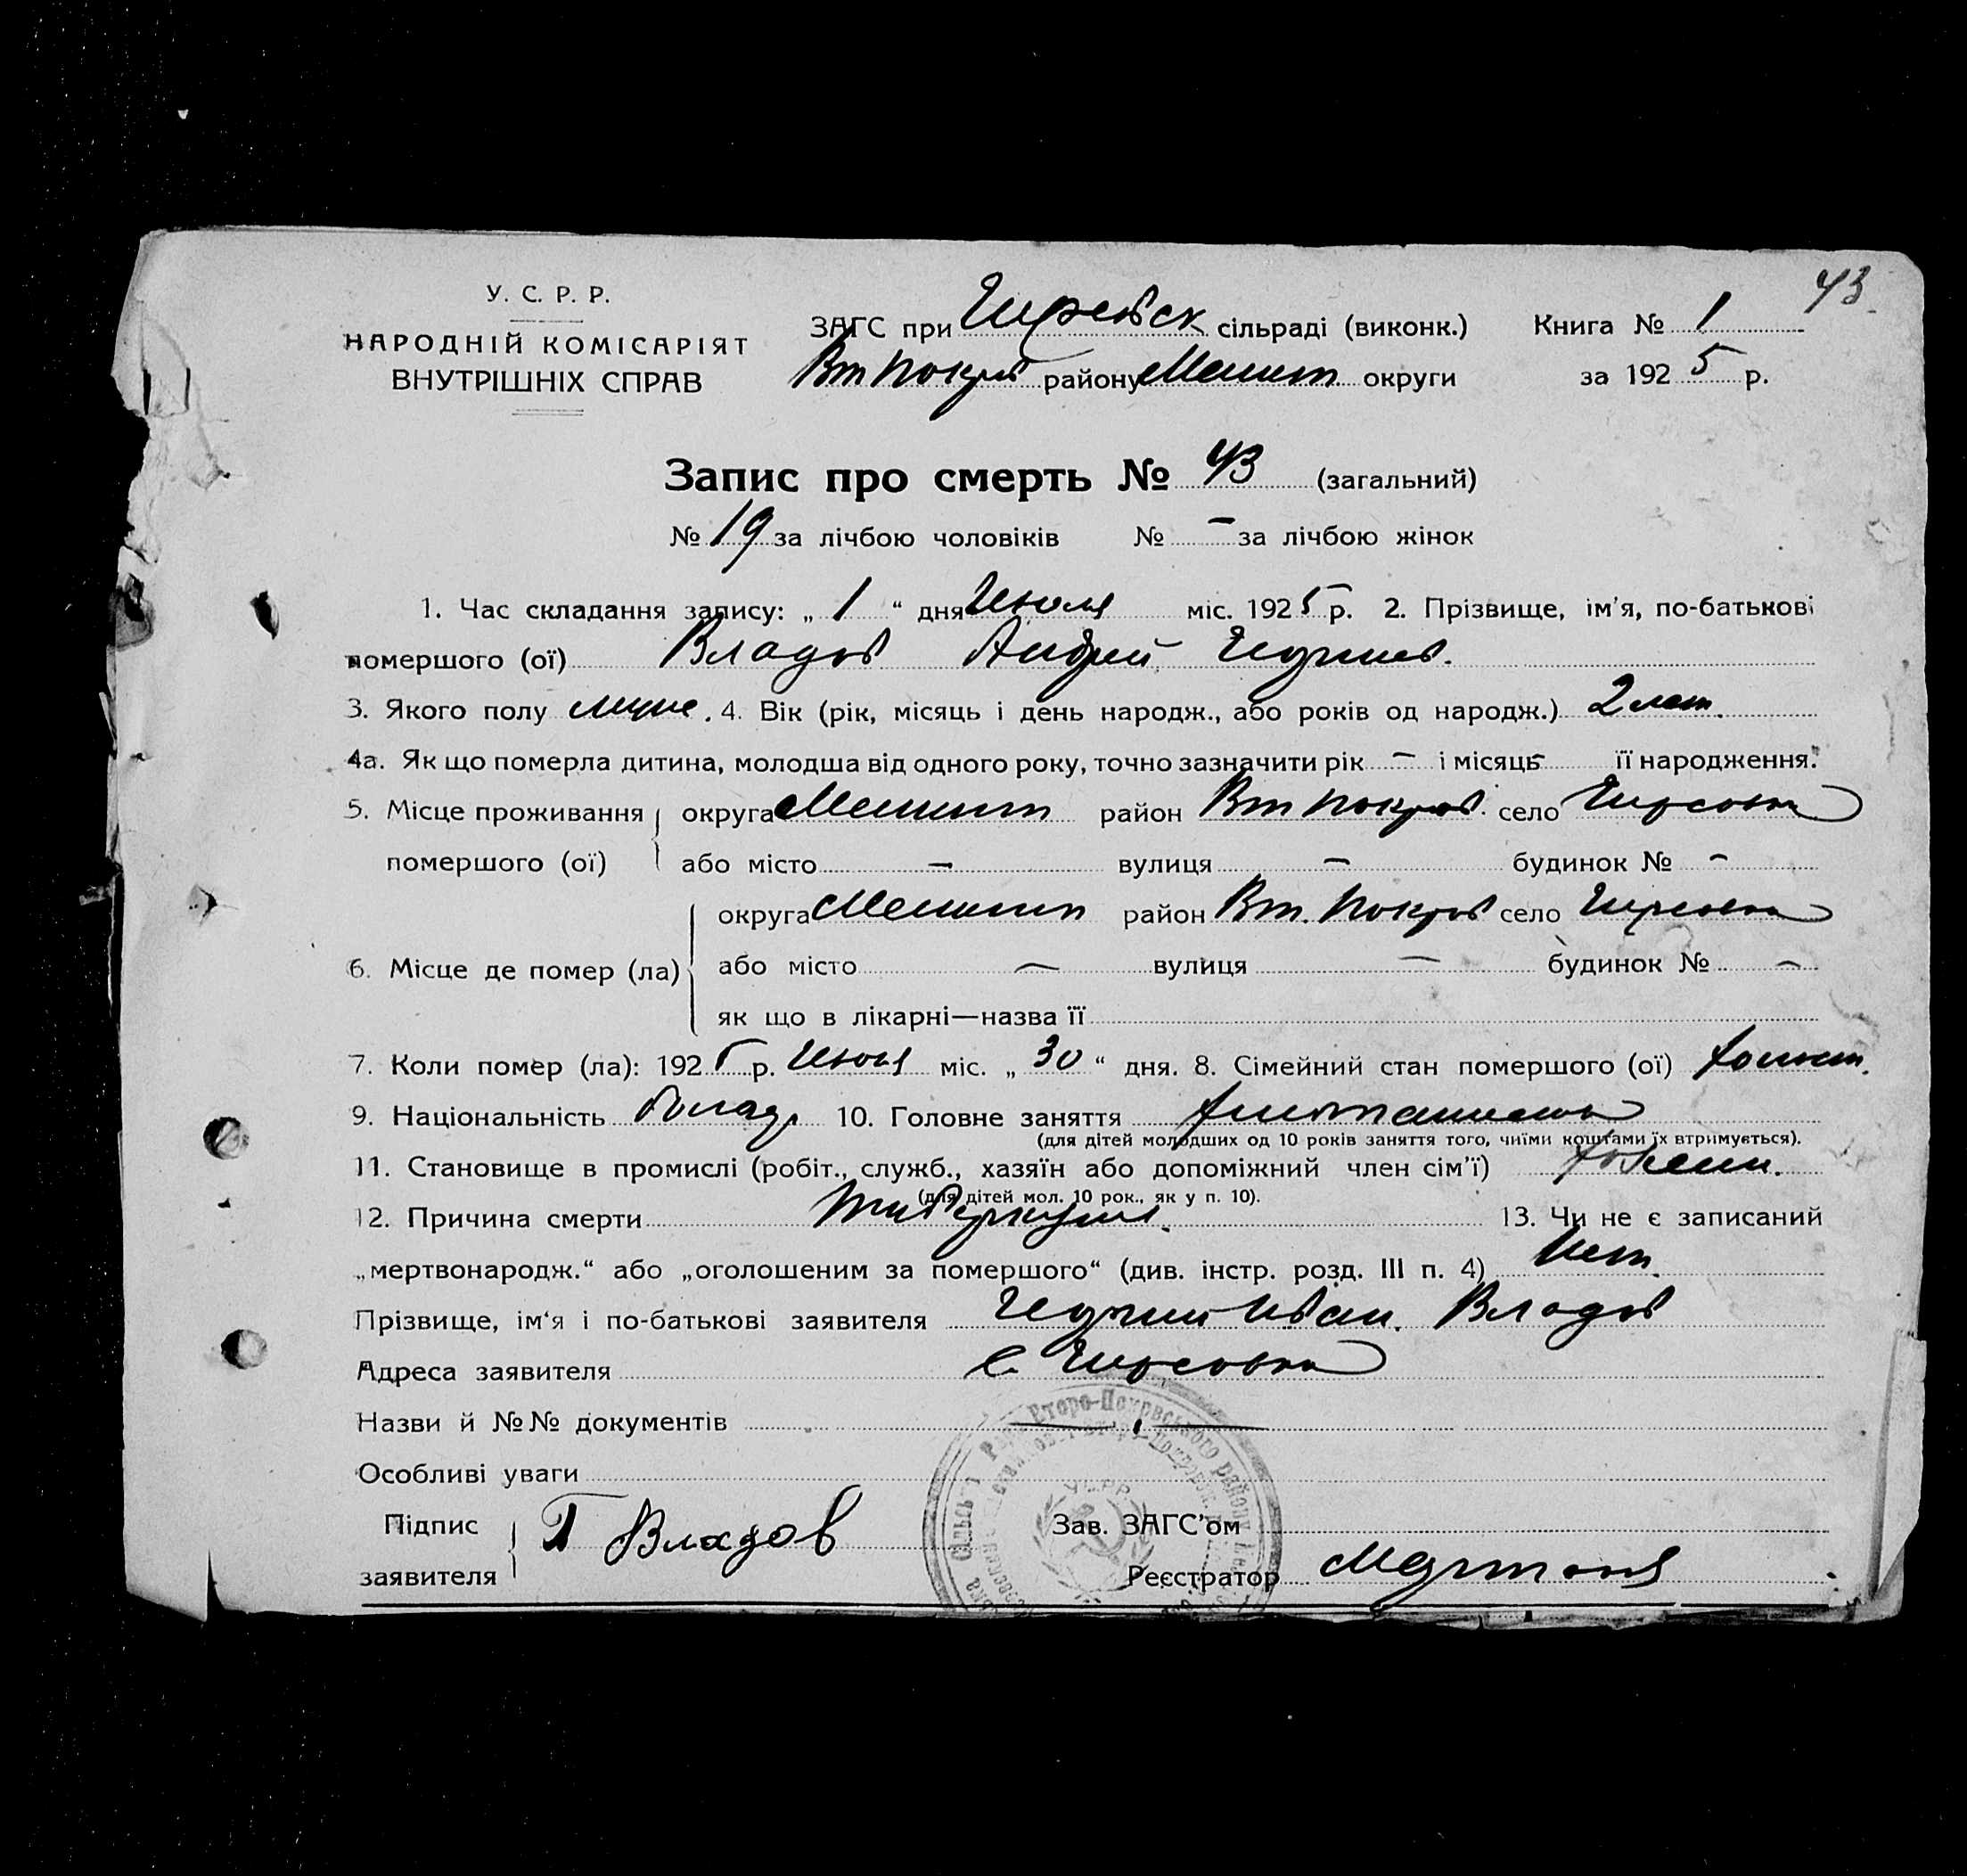 43
У. С. Р. Р.
НАРОДНІЙ КОМІСАРІЯТ
ВНУТРІШНІХ СПРАВ
ЗАГС при Гирсівск сільраді (виконк.) Книга № 1
Вт Покров району Мелит округи за 1925 р.
Запис про смерть № 43 (загальний)
№ 19 за лічбою чоловіків № — за лічбою жінок
1. Час складання запису: „ 1 “ дня Июля міс. 1925 р. 2. Прізвище, ім'я, по-батькові
помершого (ої) Владов Андрей
3. Якого полу муже. 4. Вік (рік, місяць і день народж., або років од народж.) 2 лет.
4а. Як що померла дитина, молодша від одного року, точно зазначити рік — і місяць — її народження.
5. Місце проживання округа Мелитоп район Вт Покров. село Гирсовка
помершого (ої) або місто — вулиця — будинок № —
округа Мелитоп район Вт. Покров село Гирсовка
6. Місце де помер (ла) або місто — вулиця — будинок № —
як що в лікарні—назва її
7. Коли помер (ла): 1925 р. міс. „ 30 “ дня. 8. Сімейний стан помершого (ої) холост.
9. Національність болгар 10. Головне заняття
(для дітей молодших од 10 років заняття того, чиїми коштами їх втримується).
11. Становище в промислі (робіт., служб., хазяїн або допоміжний член сім'ї) хозяин.
(для дітей мол. 10 рок., як у п. 10).
12. Причина смерти Туберкулез. 13. Чи не є записаний
„мертвонародж.“ або „оголошеним за помершого“ (див. інстр. розд. III п. 4) Нет.
Прізвище, ім'я і по-батькові заявителя Иван. Владов
Адреса заявителя с. Гирсовка
Назви й №№ документів —
Особливі уваги
Підпис Г Владов Зав. ЗАГС'ом
заявителя Реєстратор
Второ-Покровського району
УСРР